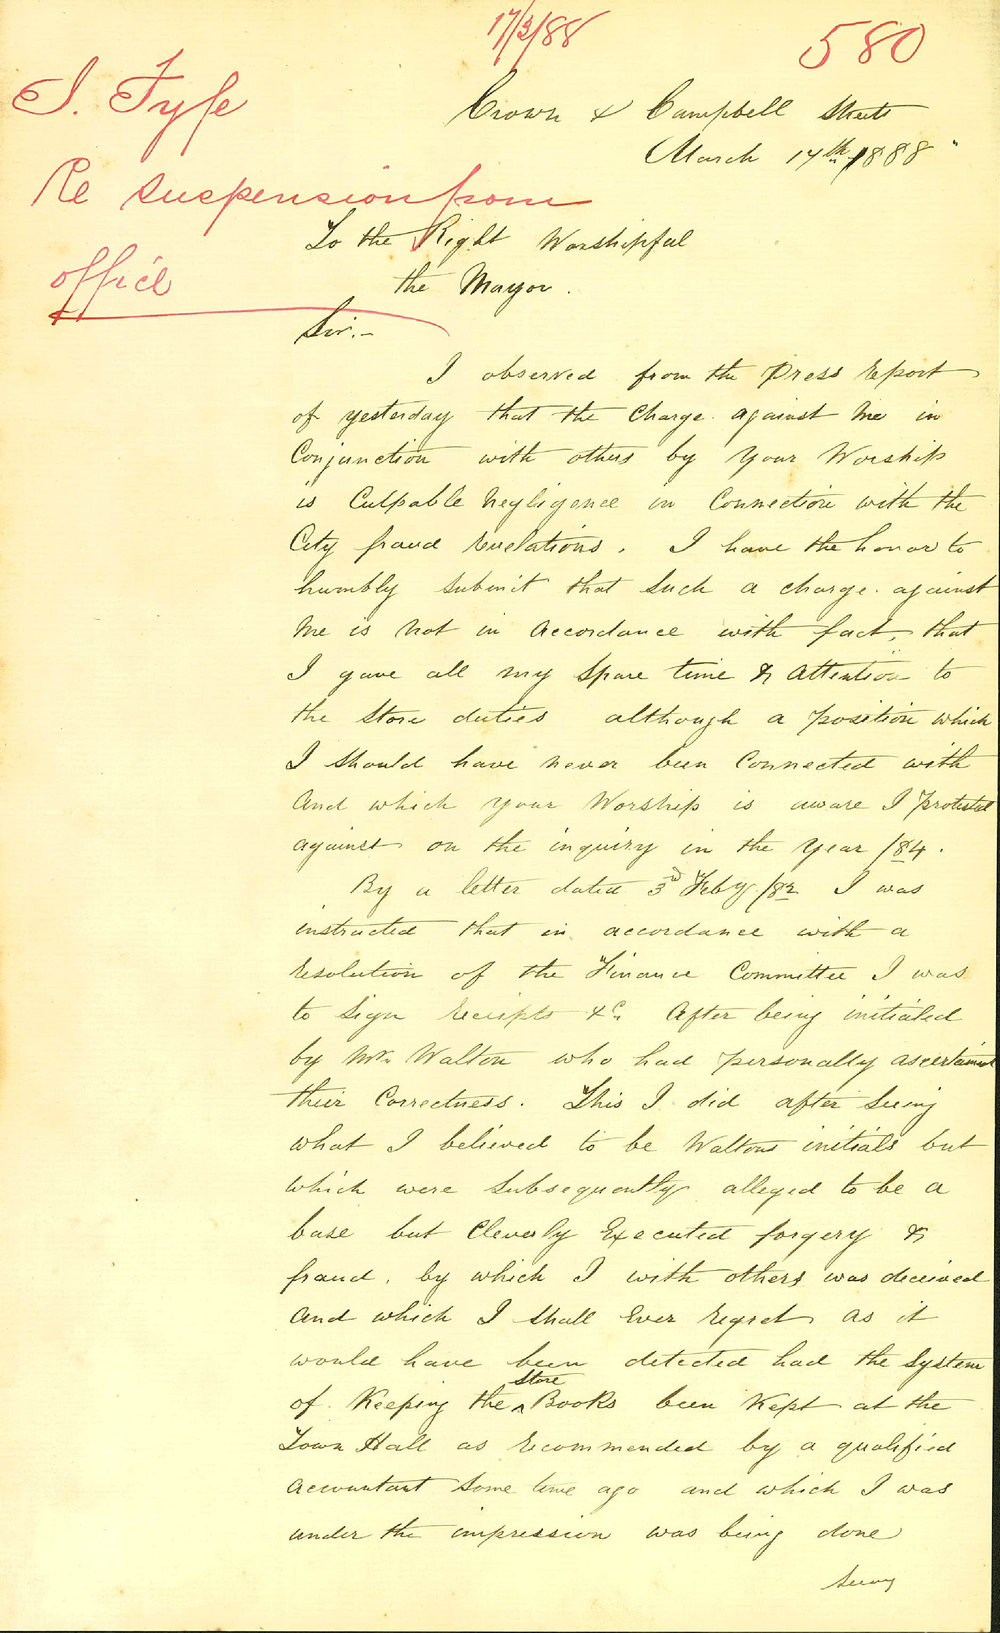 17/3/88
580
J. Fyfe
Re suspension from
office
Crown & Campbell Streets
March 17th 1888
To the Right Worshipful
the Mayor.
Sir.-
I observed from the Press Report
of yesterday that the Charge against me in
Conjunction with others by Your Worship
is Culpable Negligence in Connection with the
City fraud revelations. I have the honor to
humbly submit that such a charge against
me is not in accordance with fact, that
I gave all my spare time & attention to
the Store duties although a position which
I should have never been Connected with
and which your Worship is aware I protested
against on the inquiry in the Year /84.
By a letter dated 3rd Feby /82 I was
instructed that in accordance with a
resolution of the Finance Committee I was
to sign receipts &c. After being initialed
by Mr. Walton who had personally ascertained
their Correctness. This I did after seeing
what I believed to be Waltons initials but
which were subsequently alleged to be a
base but Cleverly Executed forgery &
fraud, by which I with others was deceived
and which I shall Ever regret as it
would have been detected had the System
of Keeping the Store Books been Kept at the
Town Hall as recommended by a qualified
accountant some time ago and which I was
under the impression was being done
seeing